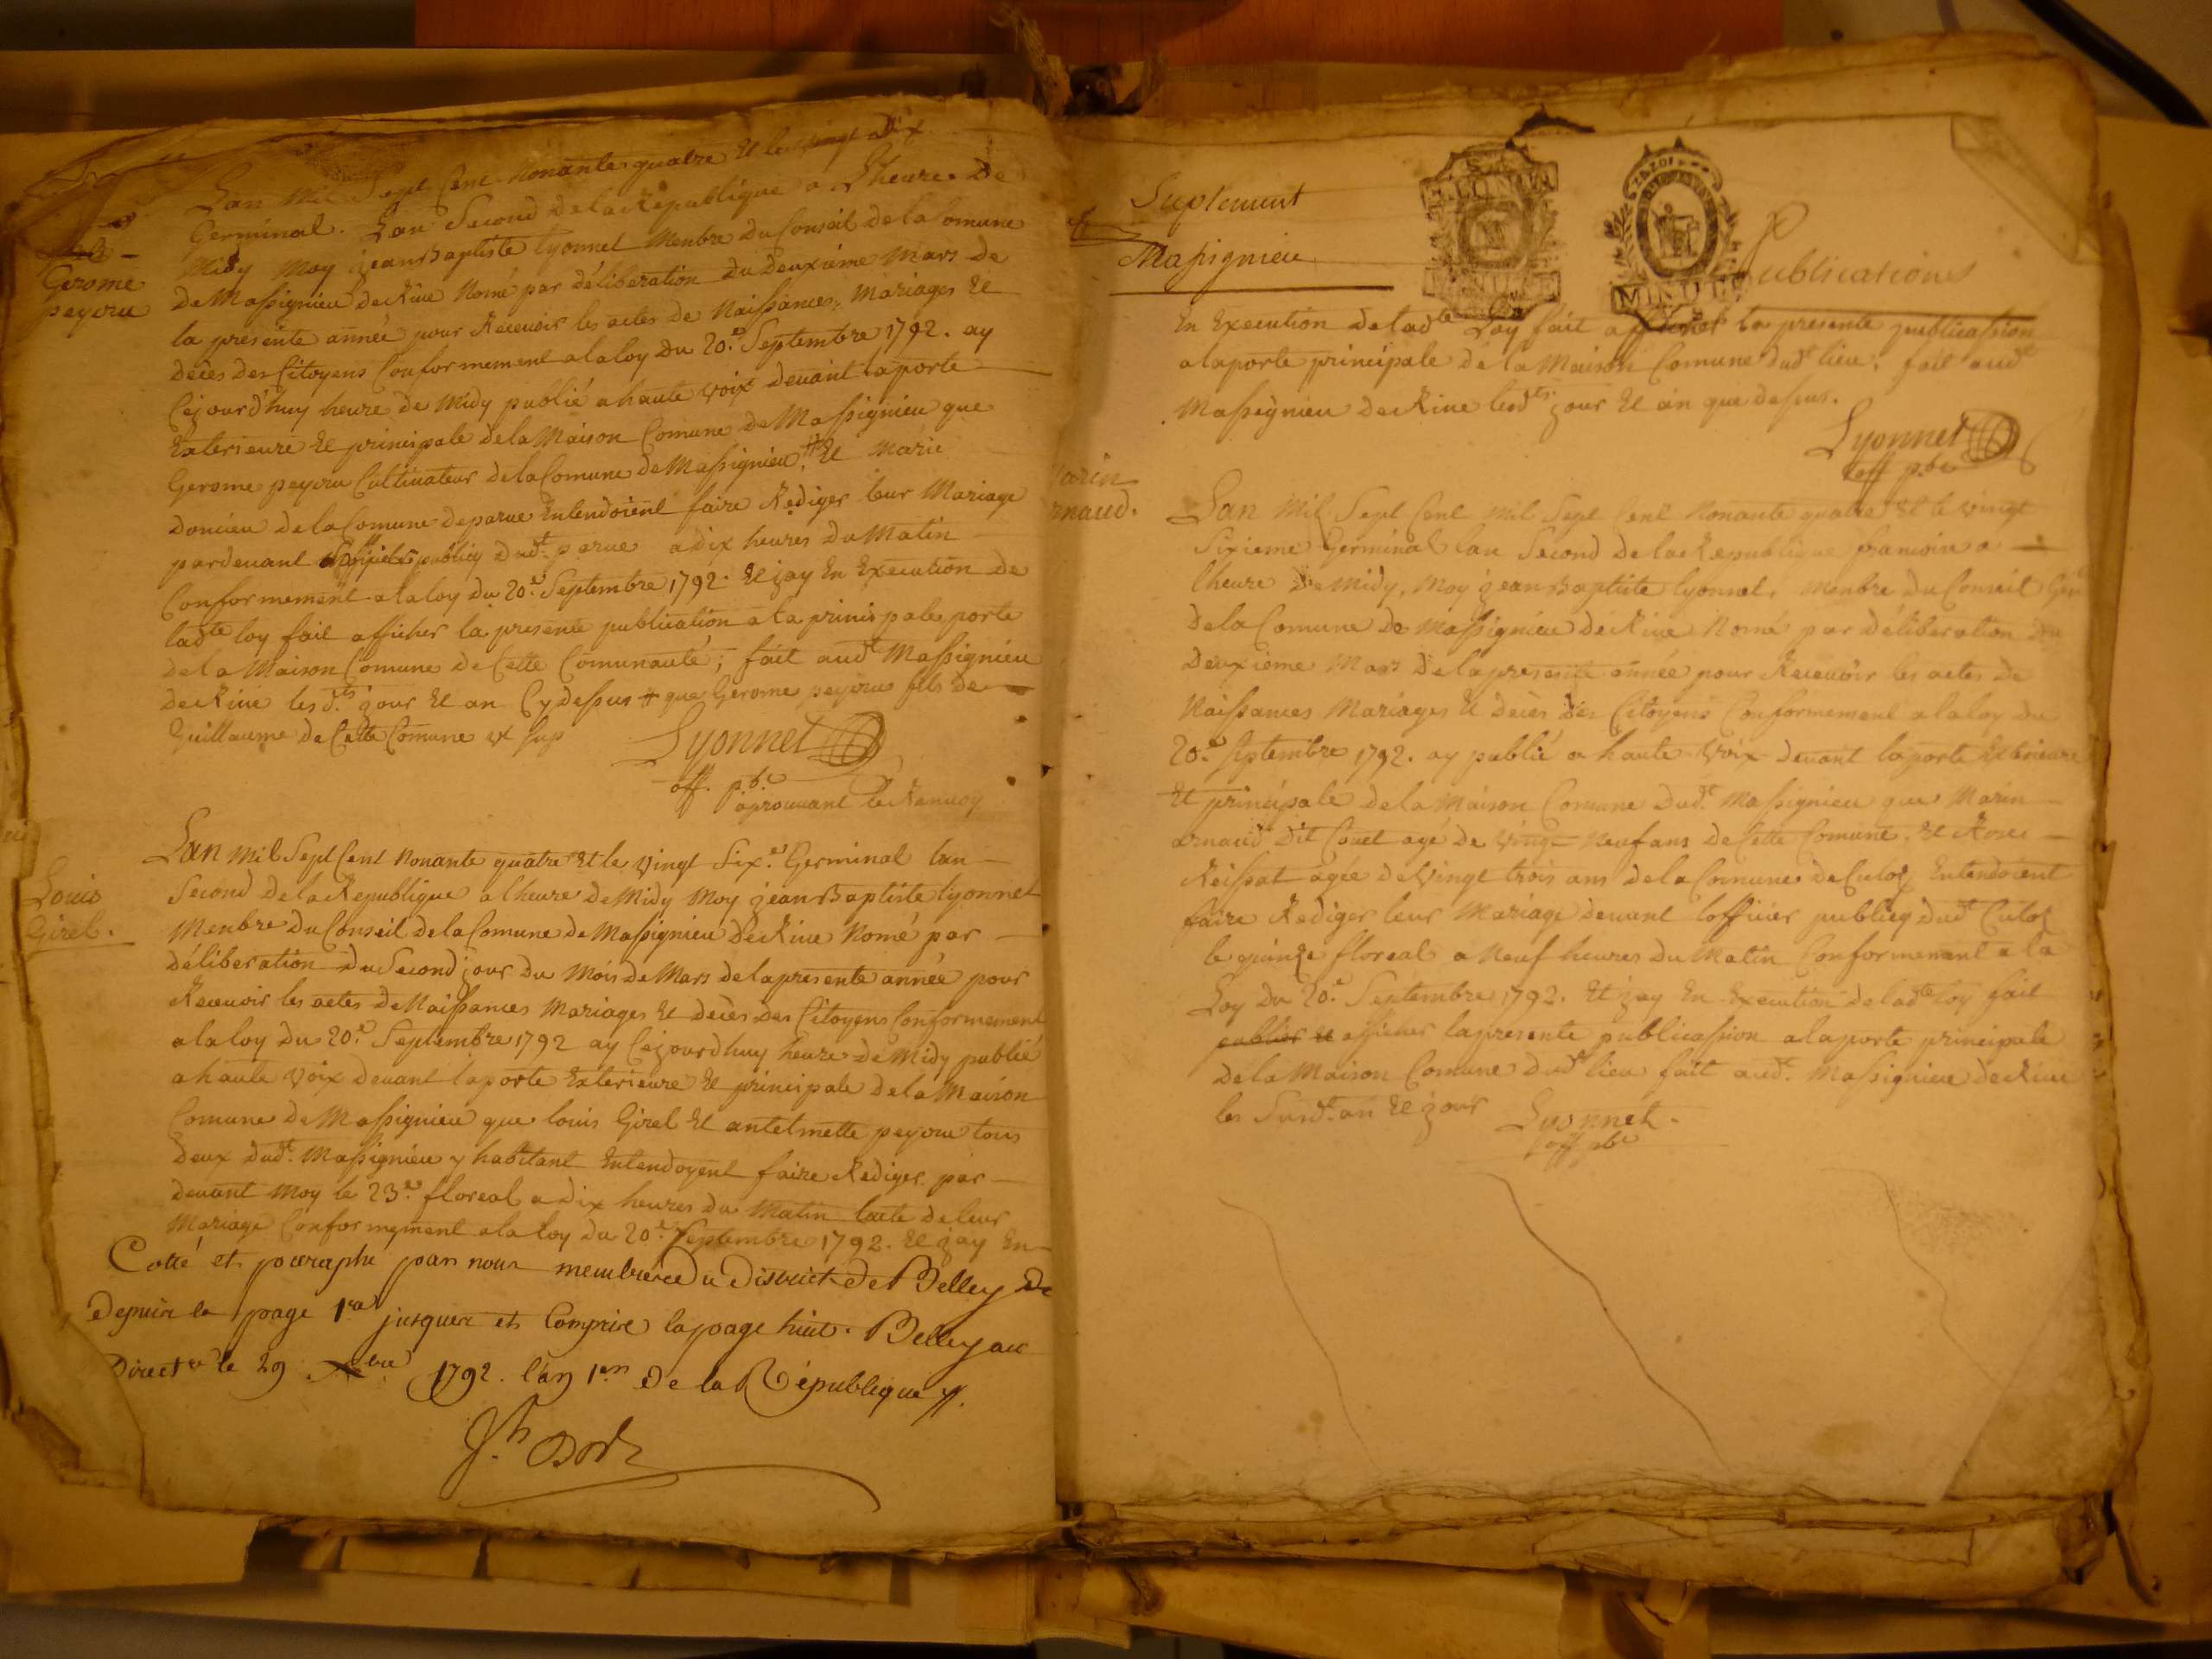 Gerome
peyou
Lan Mil Sept Cent Nonante quatre Et le vingt
Germinal. Lan Second de la Republique a Lheure De
Midy Moy jean Baptiste Lyonnet Menbre du Conseil de la Comune
de Massignieu de Rive Nomé par déliberation du deuxième Mars de
la présente année pour Recevoir les actes de Naissances, Mariages Et
décès des Citoyens Conformement a la loy du 20.e Septembre 1792. ay
Cejourd'huy heure de Midy publié a haute voix devant la porte
Exterieure Et principale de la Maison Comune de Massignieu que
Gerome peyou Cultivateur de la Comune de Massignieu # Et Marie
doncieu de la Comune de parve Entendoient faire Rediger leur Mariage
pardevant publicq dudt parve a dix heures du Matin
Conformement a la loy du 20.e Septembre 1792. Et jay En Execution de
ladte loy fait afficher la presente publication a la principale porte
de la Maison Comune de Cette Comunauté; fait audt Massignieu
de Rive lesdts jour Et an Cy dessus # que Gerome peyou fils de
Guillaume de Cette Comune
Lyonnet
off. pbc
aprouvant le Renvoy
Louis
Girel.
Lan mil Sept Cent Nonante quatre Et le vingt Six.e Germinal lan
Second de la Republique a lheure de Midy Moy jean Baptiste lyonnet
Menbre du Conseil de la Comune de Massignieu de Rive Nomé par
déliberation du Second jour du Mois de Mars de la presente année pour
Recevoir les actes de Naissances Mariages Et décès des Citoyens Conformement
a la loy du 20.e Septembre 1792 ay Cejourdhuy heure de Midy publié
a haute voix devant la porte Exterieure Et principale de la Maison
Comune de Massignieu que louis Girel Et antelmette peyou tous
deux dudt Massignieu y habitant Entendoyent faire Rediger par
devant Moy le 23.e floreal a dix heures du Matin lacte de leur
Mariage Conformement a la loy du 20.e Septembre 1792. Et jay En
Cotté et paraphé par nous membre du District de Belley
Depuis la page 1re jusques et Comprise la page huit. Belley au
Directre le 29 bre 1792. l'an 1er de la République
Suplement
Massignieu
MINUTE
MINUTE
Publications
En Execution de ladte Loy fait afficher la presente publicassion
a la porte principale de la Maison Comune dudt lieu. fait audt
Massignieu de Rive lesdts jour Et an que dessus.
Lyonnet
off pbc
Lan Mil Sept Cent Mil Sept Cent Nonante quatre Et le vingt
Sixieme Germinal lan Second de la Republique francoise a
lheure de Midy, Moy jean Baptiste lyonnet, Menbre du Conseil
de la Comune de Massignieu de Rive Nomé par déliberation du
deuxieme Mars de la presente année pour Recevoir les actes de
Naissances Mariages Et décès des Citoyens Conformement a la loy du
20.e Septembre 1792. ay publié a haute voix devant la porte Exterieure
Et principale de la Maison Comune dudt Massignieu que Marin
arnaud dit Couet agé de vingt Neuf ans de Cette Comune. Et
Reissat agée de vingt trois ans de la Comune de Culoz Entendoient
faire Rediger leur Mariage devant lofficier publicq dudt Culoz
le quinze floreal a Neuf heures du Matin Conformement a la
Loy du 20.e Septembre 1792. Et jay En Execution de ladte loy fait
publier et afficher la presente publicassion a la porte principale
de la Maison Comune dudt lieu fait audt Massignieu de Rive
les Susdt an Et jour
Lyonnet.
off pbc